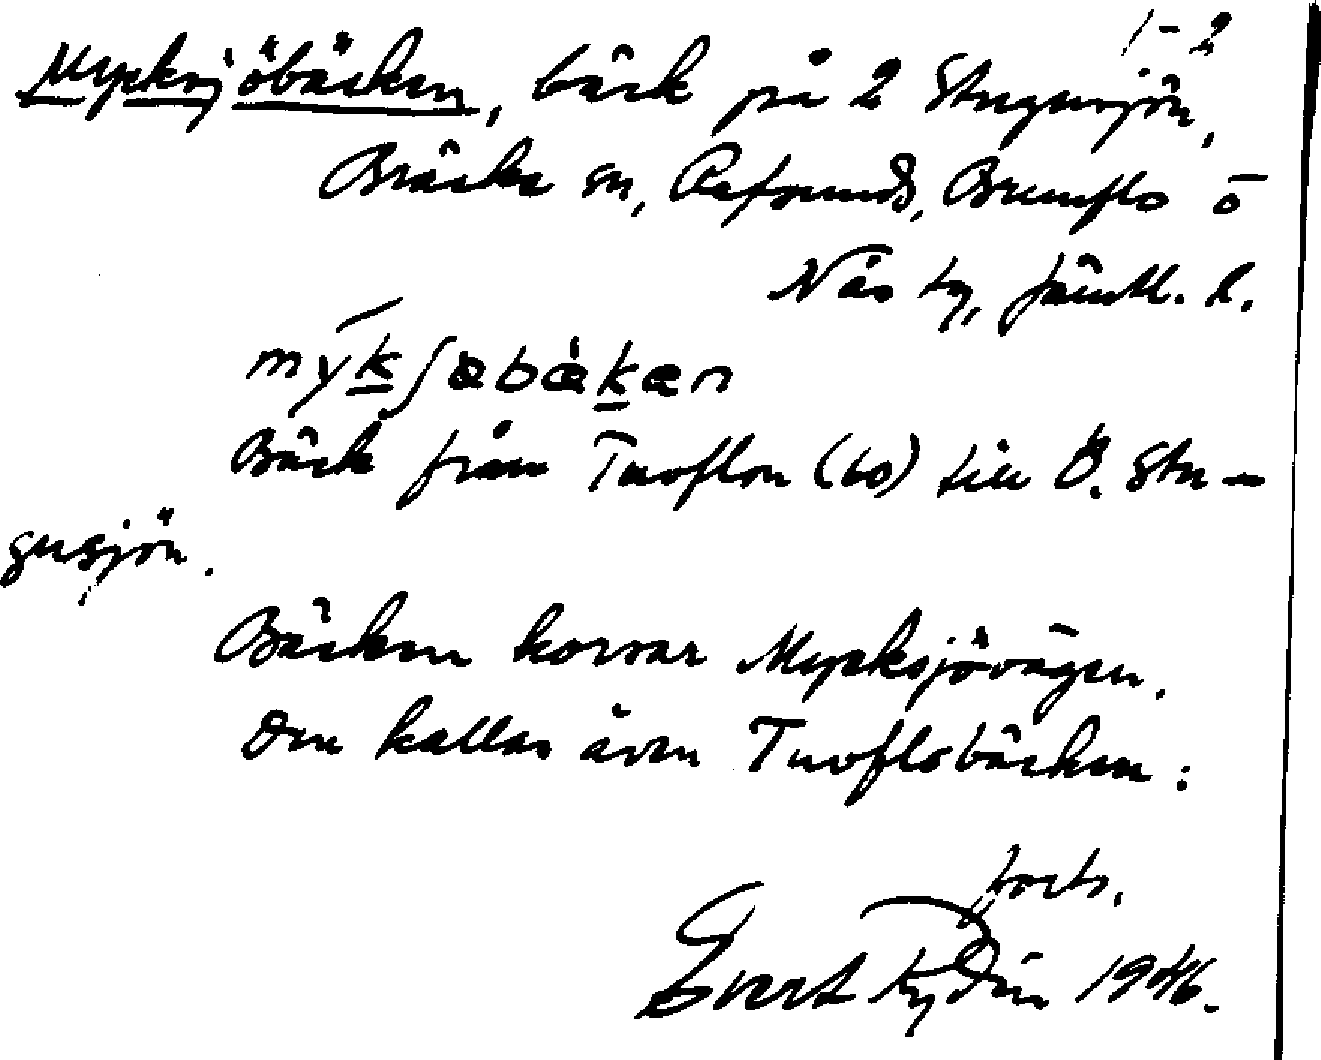 1-2
Mycksjöbäcken, bäck på 2 Stugusjön,
Bräcke sn, Refsunds, Brunflo o
Näs tg, Jämtl. l.
mykʃæbækæn
Bäck från Tuoflon (bo) till Ö. Stu-
gusjön.
Bäcken korsar Mycksjövägen.
Den kallas även Tuoflobäcken:
forts.
Evert Rydin 1946.